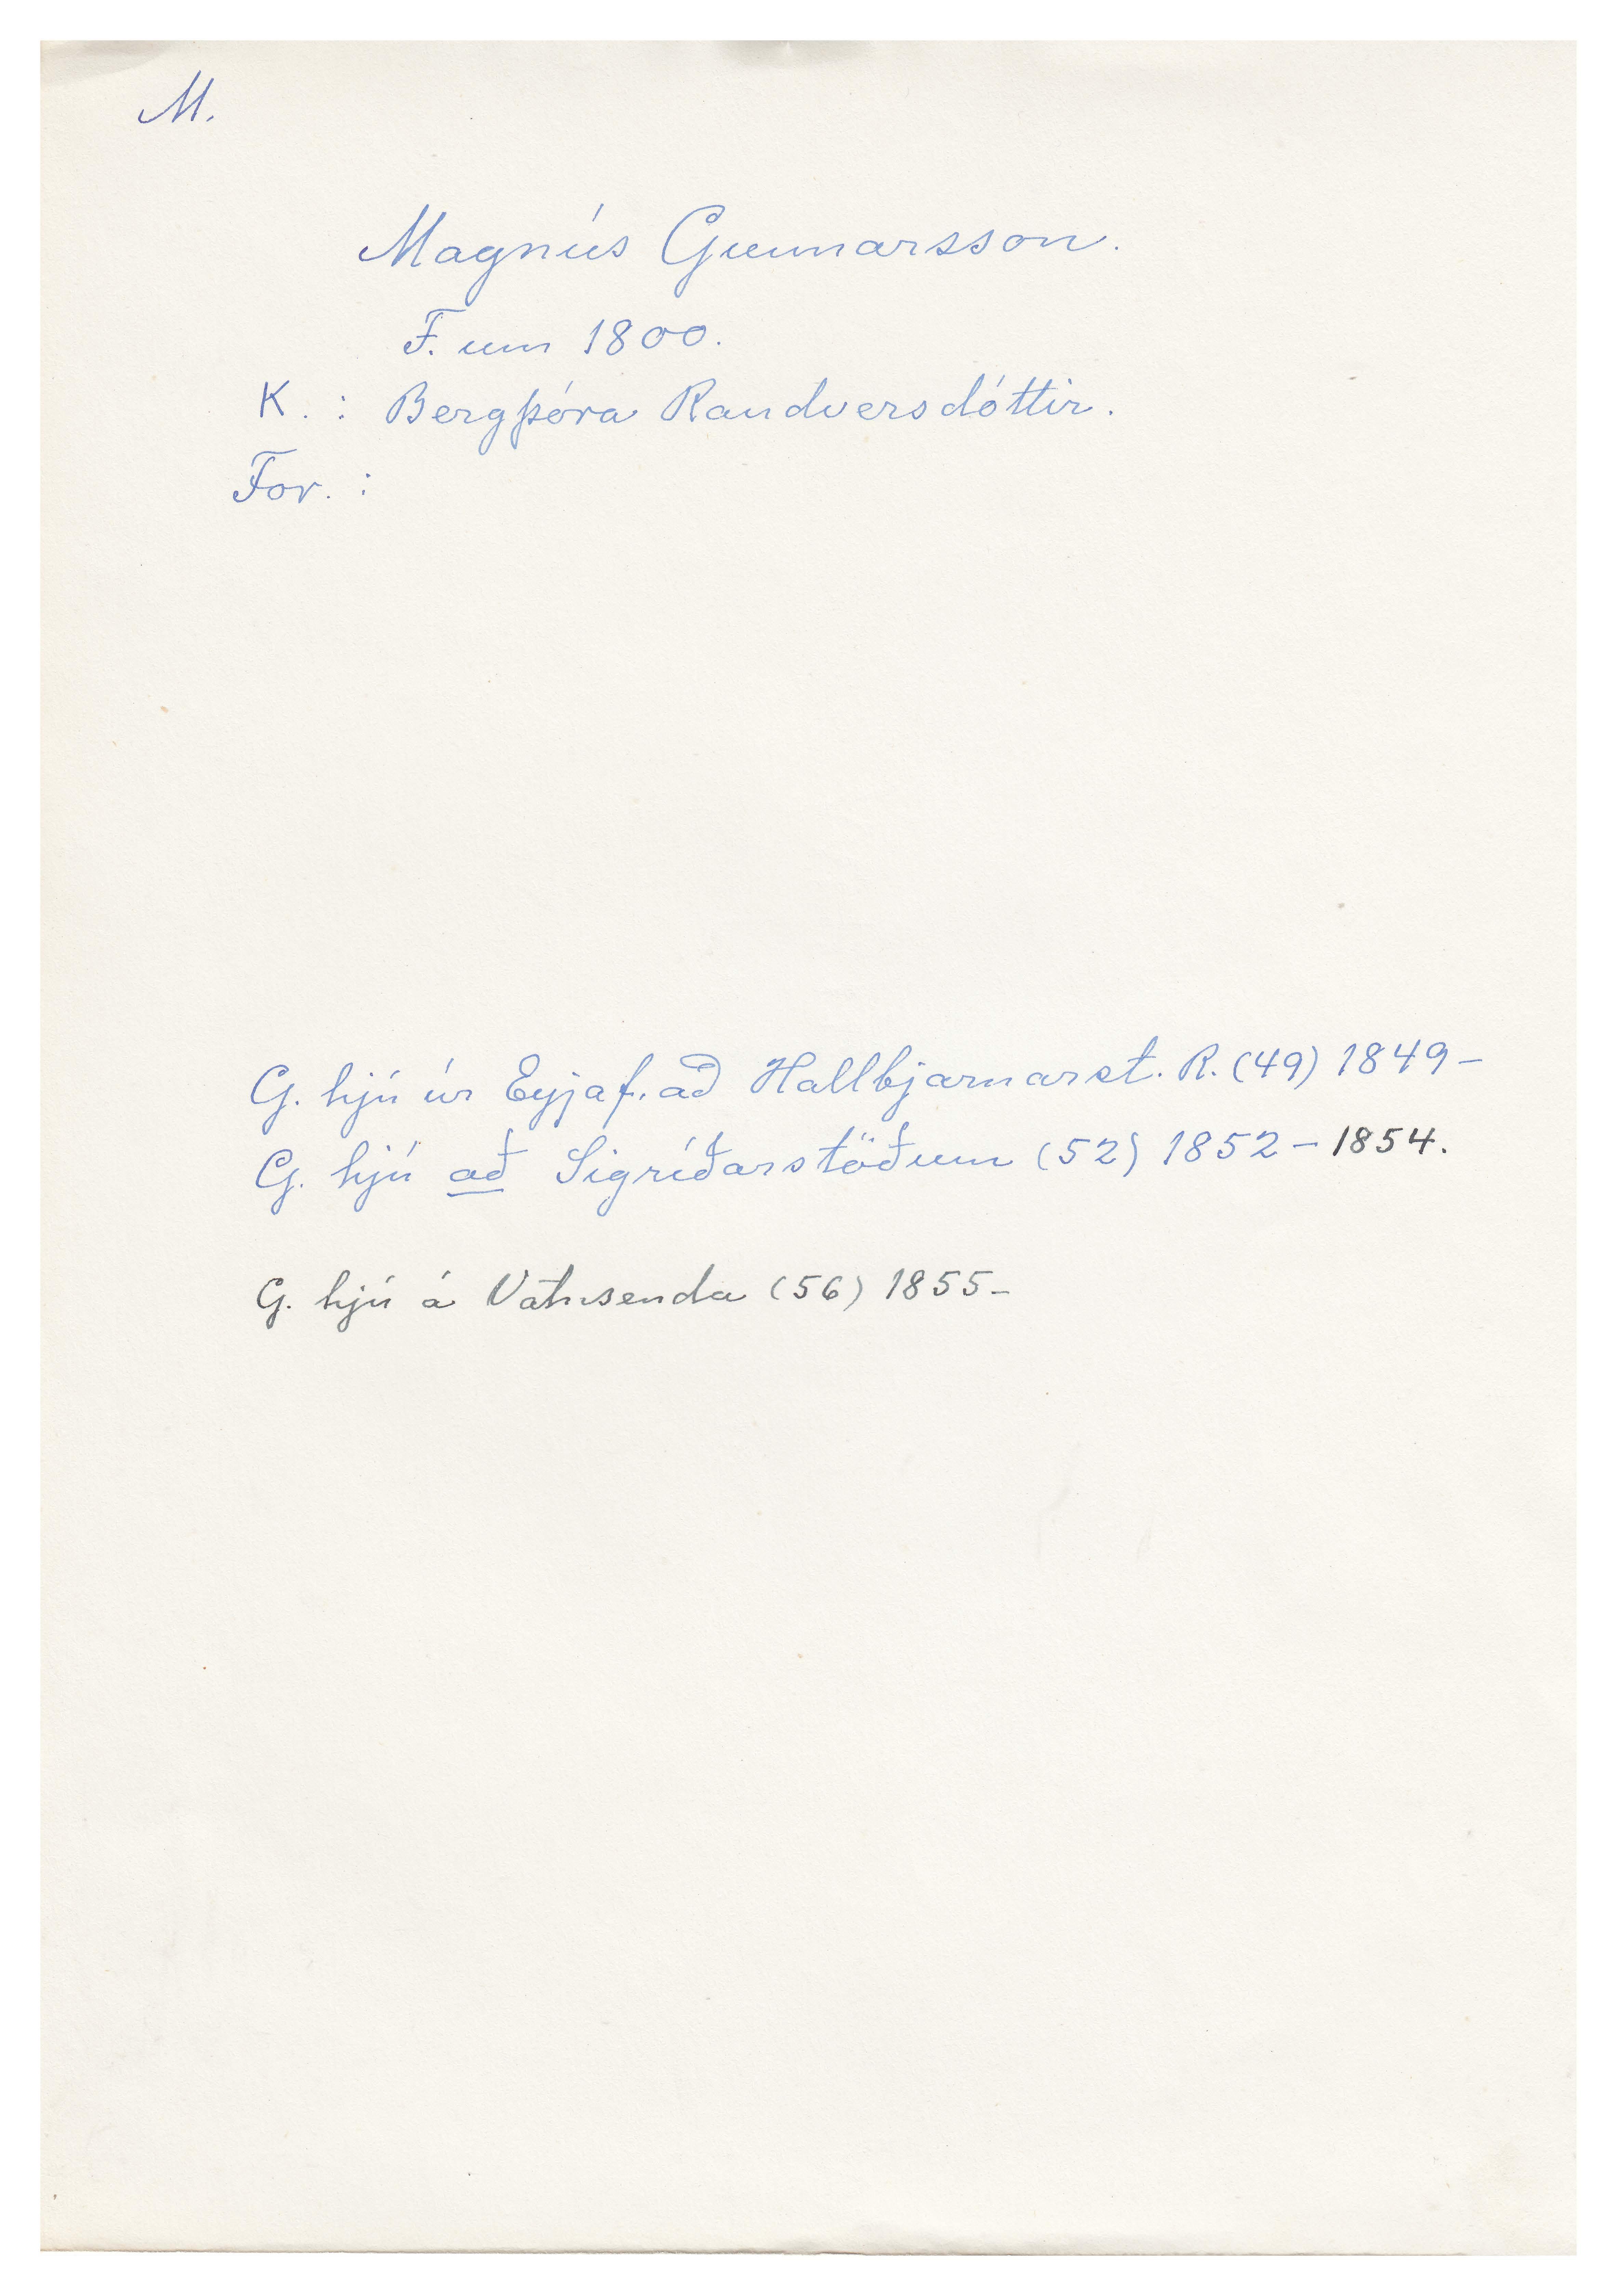 M.
Magnús Gunnarsson.
F. um 1800.
K. : Bergþóra Randversdóttir.
For. :
G. hjú úr Eyjaf. að Hallbjarnarst. R. (49) 1849 –
G. hjú að Sigríðarstöðum (52) 1852 – 1854.
G. hjú á Vatnsenda (56) 1855 –